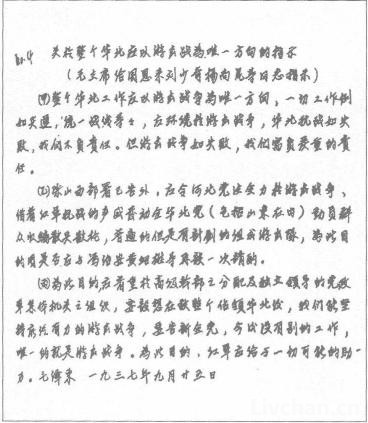 关于整个华北应以游击战为唯一方向的指示
（毛主席给周恩来刘少奇杨尚昆等同志指示）
(1)整个华北工作应以游击战争为唯一方向，一切工作例
如兵运，统一战线等々，应环绕游击战争，华北抗战如失
败，我们不负责任。但游击战争如失败，我们需负严重的责
任。
(2)除山西部署已告外，应令河北党注全力于游击战争，
借着红军抗战的声威发动全华北党（包括山东在内）动员群
众收编散兵散枪，普遍的但是有计划的组成游击队，为此目
的
(3)为此目的应着重于高级干部之分配及独立领导的党政
军集体机关之组织，要设想在敌整个占领华北后，我们能坚
持广泛有力的游击战争，要告诉全党，今后没有别的工作，
唯一的就是游击战争。为此目的，红军应给予一切可能的助
力。毛泽东 一九三七年九月廿五日
Livchan.cn